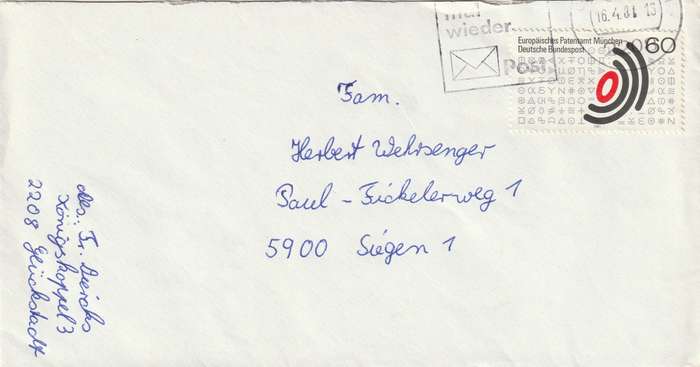 mal
wieder.
Post
16.4.81 13
Europäisches Patentamt München
Deutsche Bundespost
60
Fam.
Herbert Wehrsenger
Paul - Fickelerweg 1
5900 Siegen 1
Abs.: Fr. Dierchs
Königskoppel 3
2208 Glückstadt